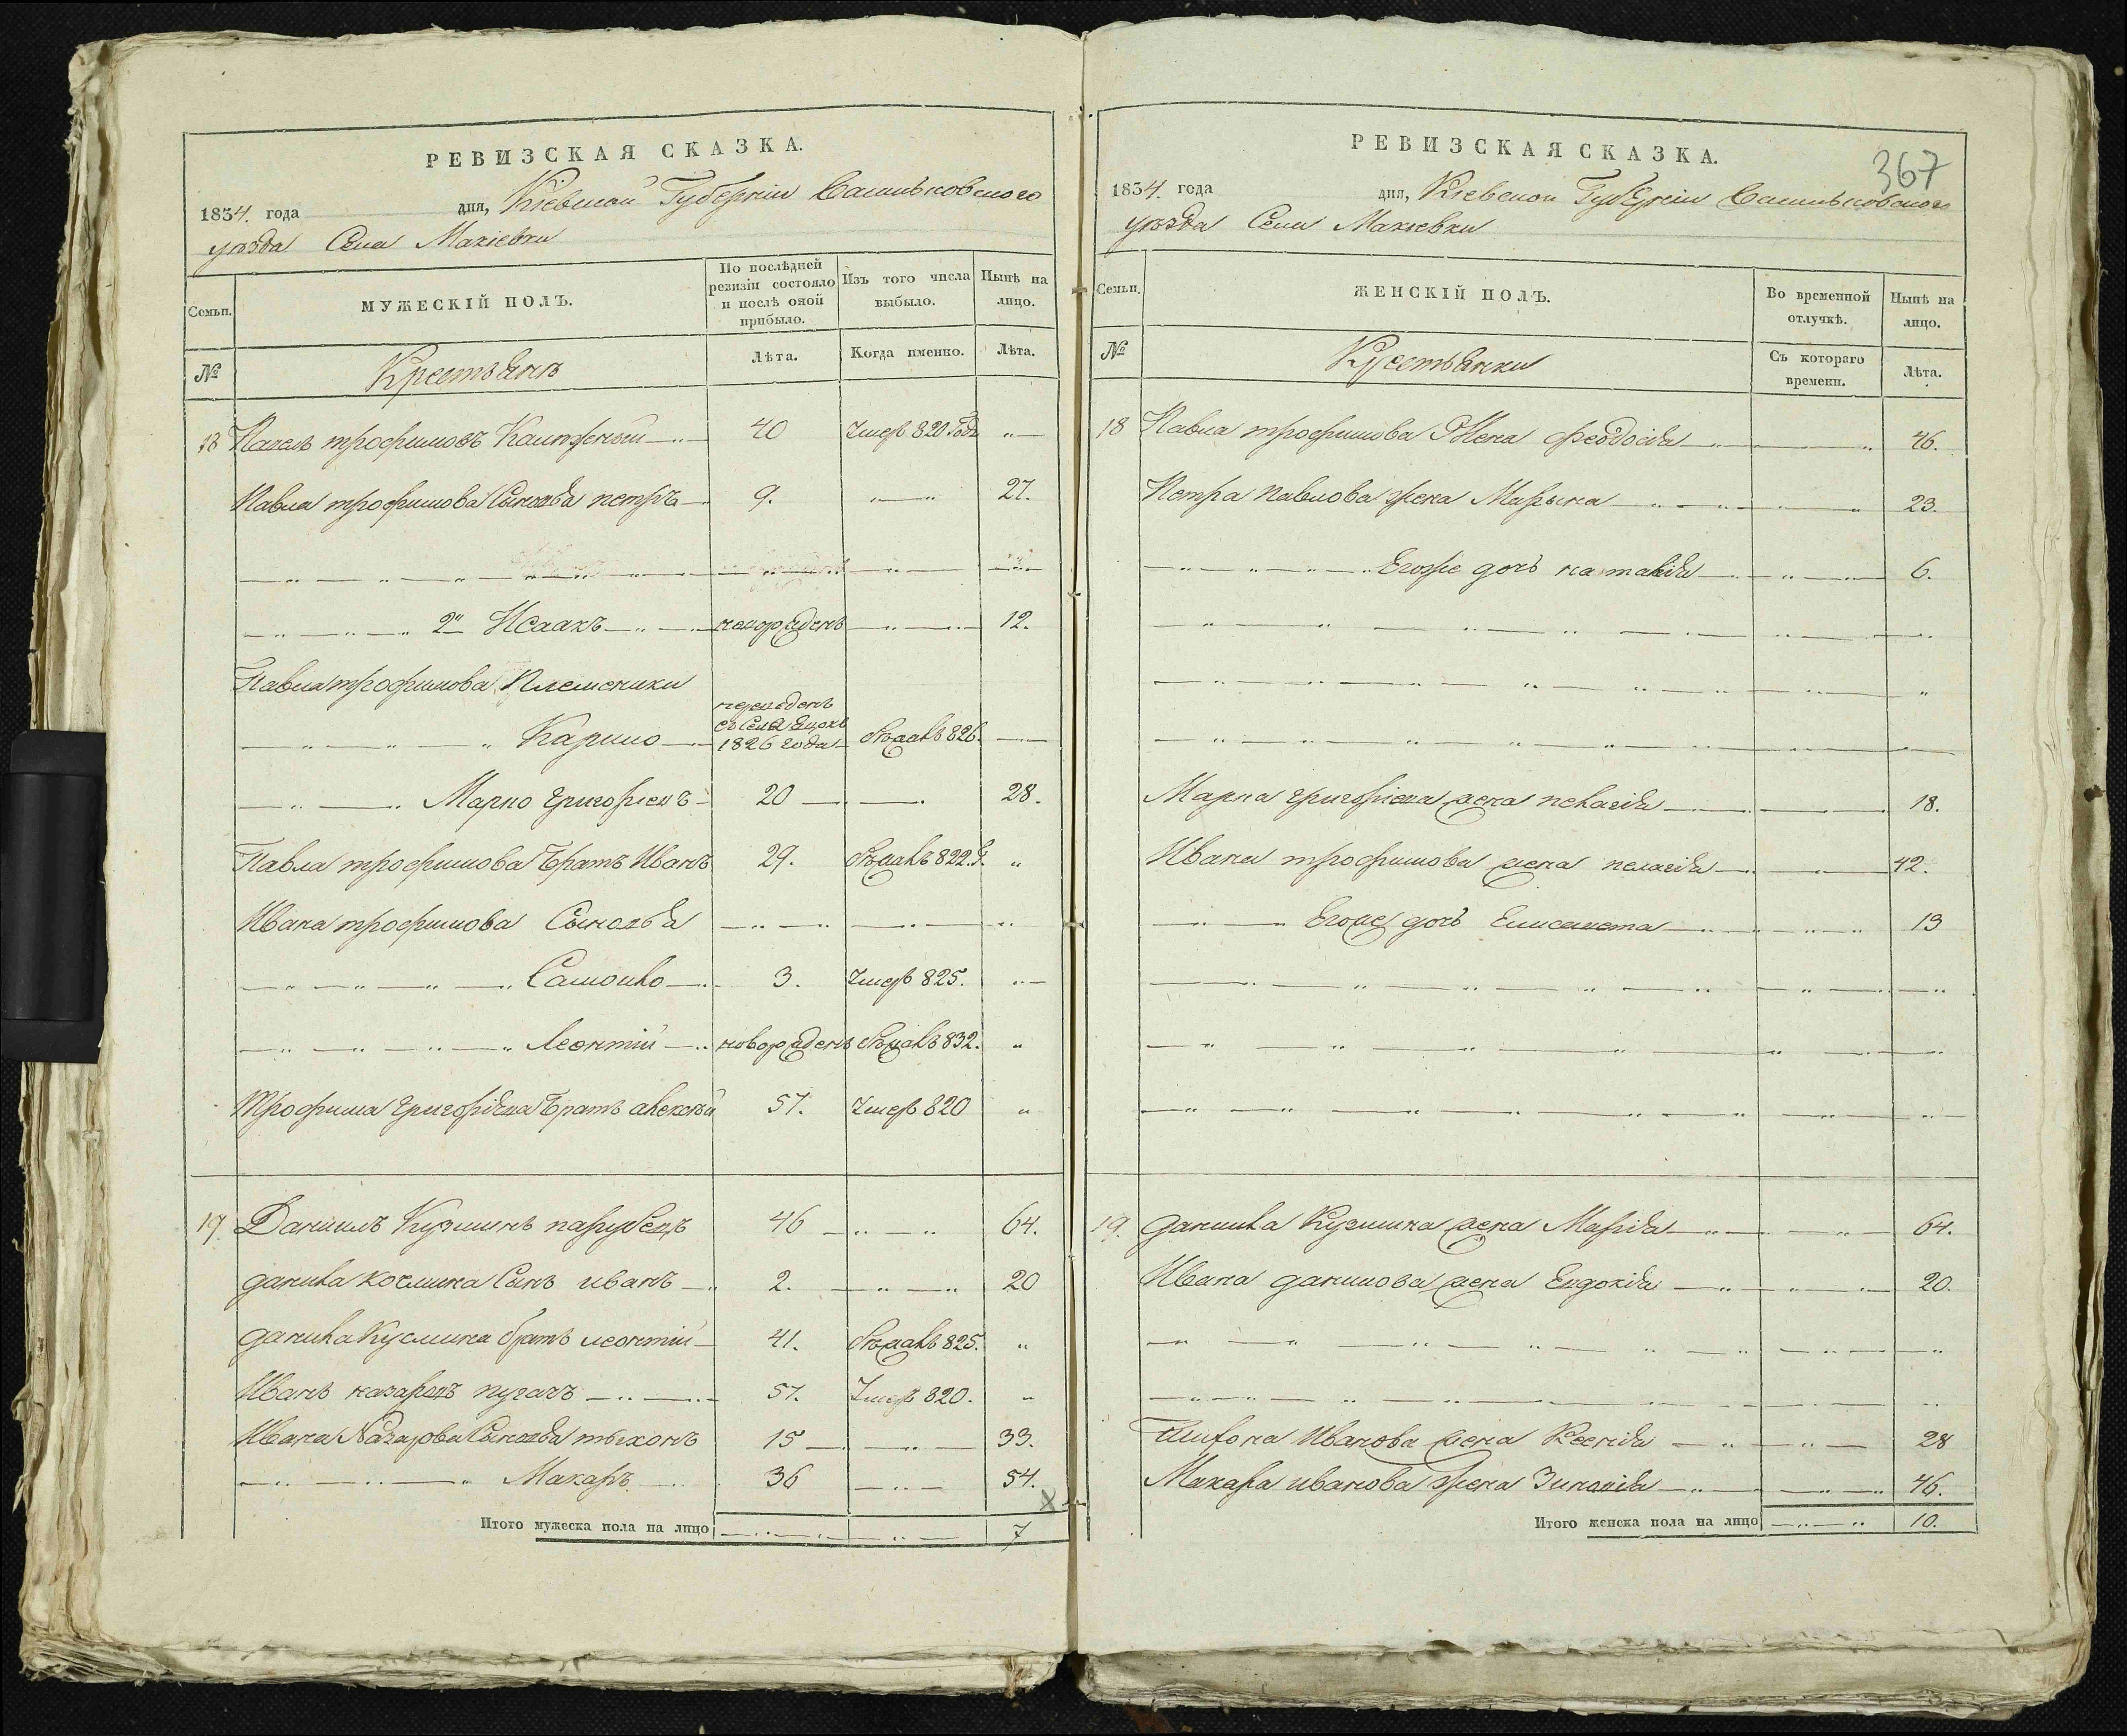 РЕВИЗСКАЯ СКАЗКА.
1834. года дня, Кіевской Губерніи Васильковского
уѣзда Села Макіевки
Семьи.
МУЖЕСКІЙ ПОЛЪ.
По послѣдней ревизіи состояло и послѣ оной прибыло.
Изъ того числа выбыло.
Нынѣ на лицо.
№
Крестьянъ
Лѣта.
Когда именно.
Лѣта.
18 Павелъ трофимовъ 40 Умеръ 820 года
Павла трофимова Сыновья петръ 9. 27.
2й Исаакъ новорожденъ 12.
Павла трофимова Племеники
Карпо переведенъ съ Села 1826 года бежалъ 826.
Марко григориевъ 20 28.
Павла трофимова Братъ Иванъ 29. бежалъ 822. г.
Ивана трофимова Сыновья
Самойло 3. Умеръ 825.
Леонтій новорожденъ бежалъ 832.
Трофима григориева Братъ алексѣй 57. Умеръ 820
19. Данилъ Кузминъ парубецъ 46 64.
данила козмина Сынъ иванъ 2. 20
данила Кузмина братъ леонтій 41. бежалъ 825.
Иванъ назаровъ пугачъ 57. Умеръ 820.
Ивана Назарова Сыновья тихонъ 15 33.
Макаръ 36 54.
Итого мужеска пола на лицо 7
РЕВИЗСКАЯ СКАЗКА.
367
1834. года дня, Кіевской Губерніи Васильковского
уѣзда Села Макіевки
Семьи.
ЖЕНСКІЙ ПОЛЪ.
Во временной отлучкѣ.
Нынѣ на лицо.
№
Крестьянки
Съ котораго времени.
Лѣта.
18 Павла трофимова Жена феодосія 46.
Петра павлова жена Марьна 23.
Егоже дочь наталія 6.
Марка григориева жена пелагія 18.
Ивана трофимова жена пелагія 42.
Егоже дочь Елисавета 13
19. данила Кузмина жена Марія 64.
Ивана данилова жена Евдокія 20.
Ивакова жена Ксенія 28
Макара иванова жена Зиновія 46.
Итого женска пола на лицо 10.